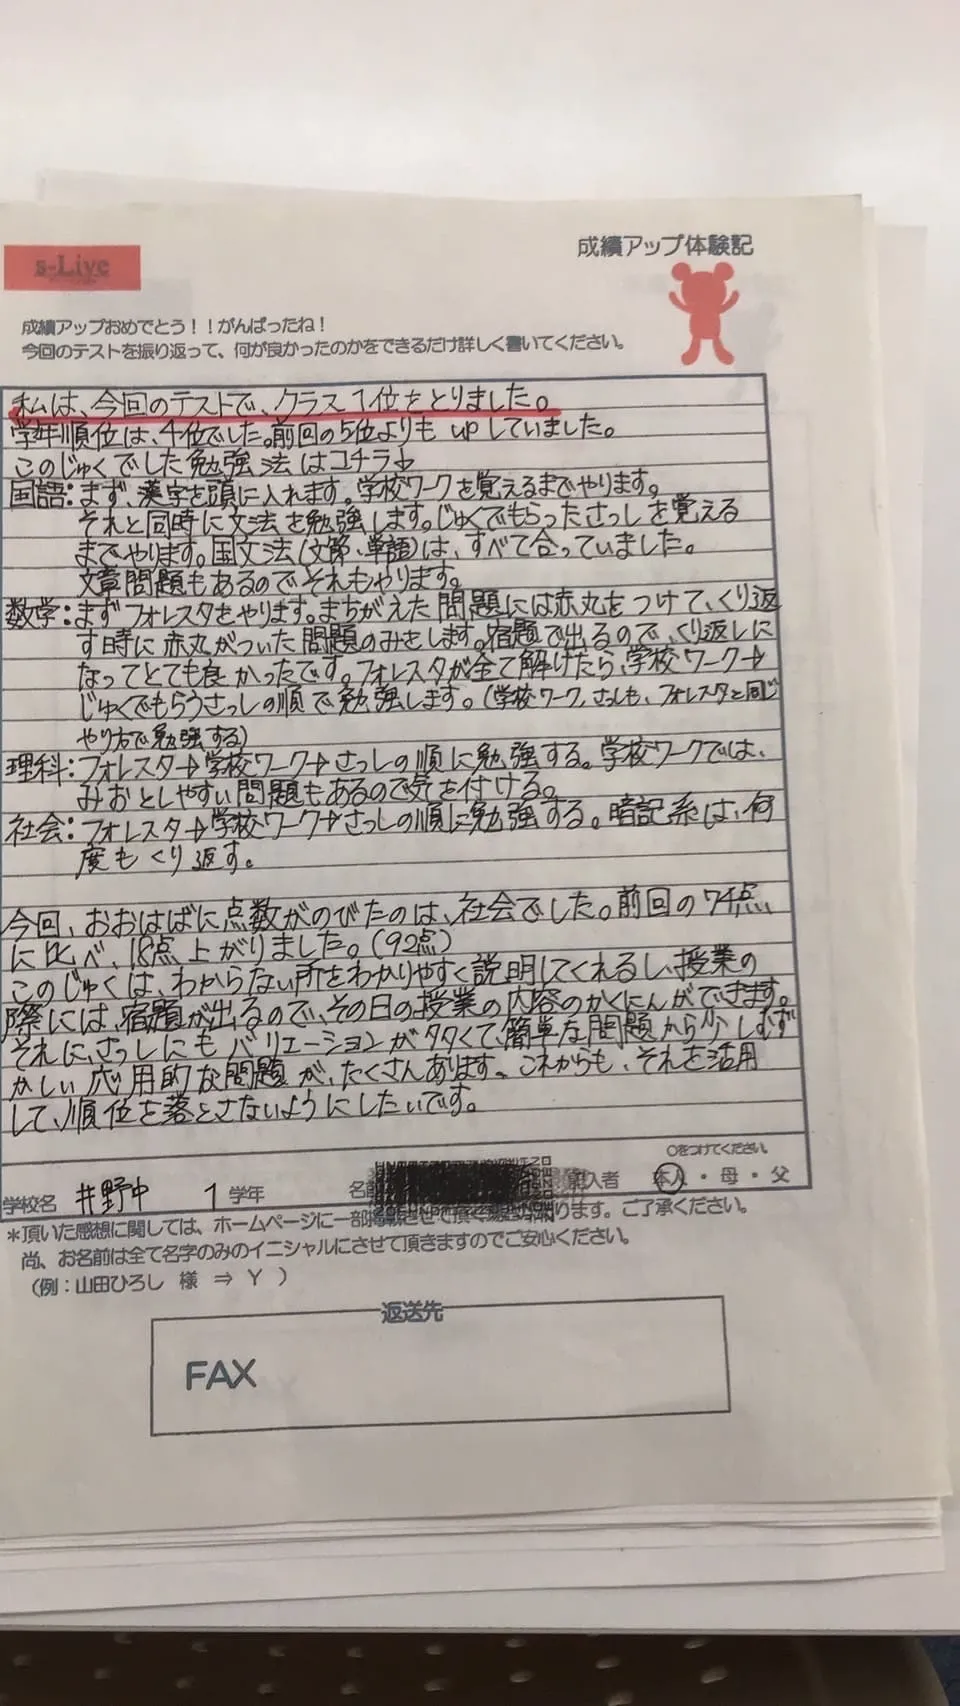 成績アップ体験記
s-Live
成績アップおめでとう！！がんばったね！
今回のテストを振り返って、何が良かったのかをできるだけ詳しく書いてください。
私は、今回のテストで、クラス1位をとりました。
学年順位は、4位でした。前回の5位よりも upしていました。
このじゅくでした勉強法はコチラ↓
国語：まず、漢字を頭に入れます。学校ワークを覚えるまでやります。
それと同時に文法を勉強します。じゅくでもらったさっしを覚える
までやります。国文法(文節、単語)は、すべて合っていました。
文章問題もあるのでそれもやります。
数学：まずフォレスタをやります。まちがえた問題には赤丸をつけて、くり返
す時に赤丸がついた問題のみをします。宿題で出るので、くり返しに
なってとても良かったです。フォレスタが全て解けたら、学校ワーク→
じゅくでもらうさっしの順で勉強します。(学校ワーク、さっしも、フォレスタと同じ
やり方で勉強する)
理科：フォレスタ→学校ワーク→さっしの順に勉強する。学校ワークでは、
みおとしやすい問題もあるので気を付ける。
社会：フォレスタ→学校ワーク→さっしの順に勉強する。暗記系は、何
度もくり返す。
今回、おおはばに点数がのびたのは、社会でした。前回の74点
に比べ、18点上がりました。(92点)
このじゅくは、わからない所をわかりやすく説明してくれるし、授業の
際には、宿題が出るので、その日の授業の内容のかくにんができます。
それに、さっしにもバリエーションが多くて、簡単な問題から少しむず
かしい応用的な問題が、たくさんあります。これからも、それを活用
して、順位を落とさないようにしたいです。
〇をつけてください。
学校名 井野中 1 学年 名前 記入者 本人・母・父
＊頂いた感想に関しては、ホームページに一部掲載させて頂く場合があります。ご了承ください。
尚、お名前は全て名字のみのイニシャルにさせて頂きますのでご安心ください。
（例：山田ひろし 様 ⇒ Y ）
返送先
FAX